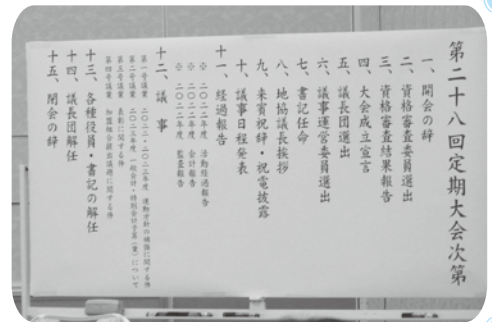 第二十八回定期大会次第
一、開会の辞
二、資格審査委員選出
三、資格審査結果報告
四、大会成立宣言
五、議長団選出
六、議事運営委員選出
七、書記任命
八、地協議長挨拶
九、来賓祝辞・祝電披露
十、議事日程発表
十一、経過報告
※ 二〇二二年度 活動経過報告
※ 二〇二二年度 会計報告
※ 二〇二二年度 監査報告
十二、議事
第一号議案 二〇二二・二〇二三年度 運動方針の補強に関する件
第二号議案 二〇二三年度 一般会計・特別会計予算(案)について
第三号議案 表彰に関する件
第四号議案 加盟組合提出議題に関する件
十三、各種役員・書記の解任
十四、議長団解任
十五、閉会の辞